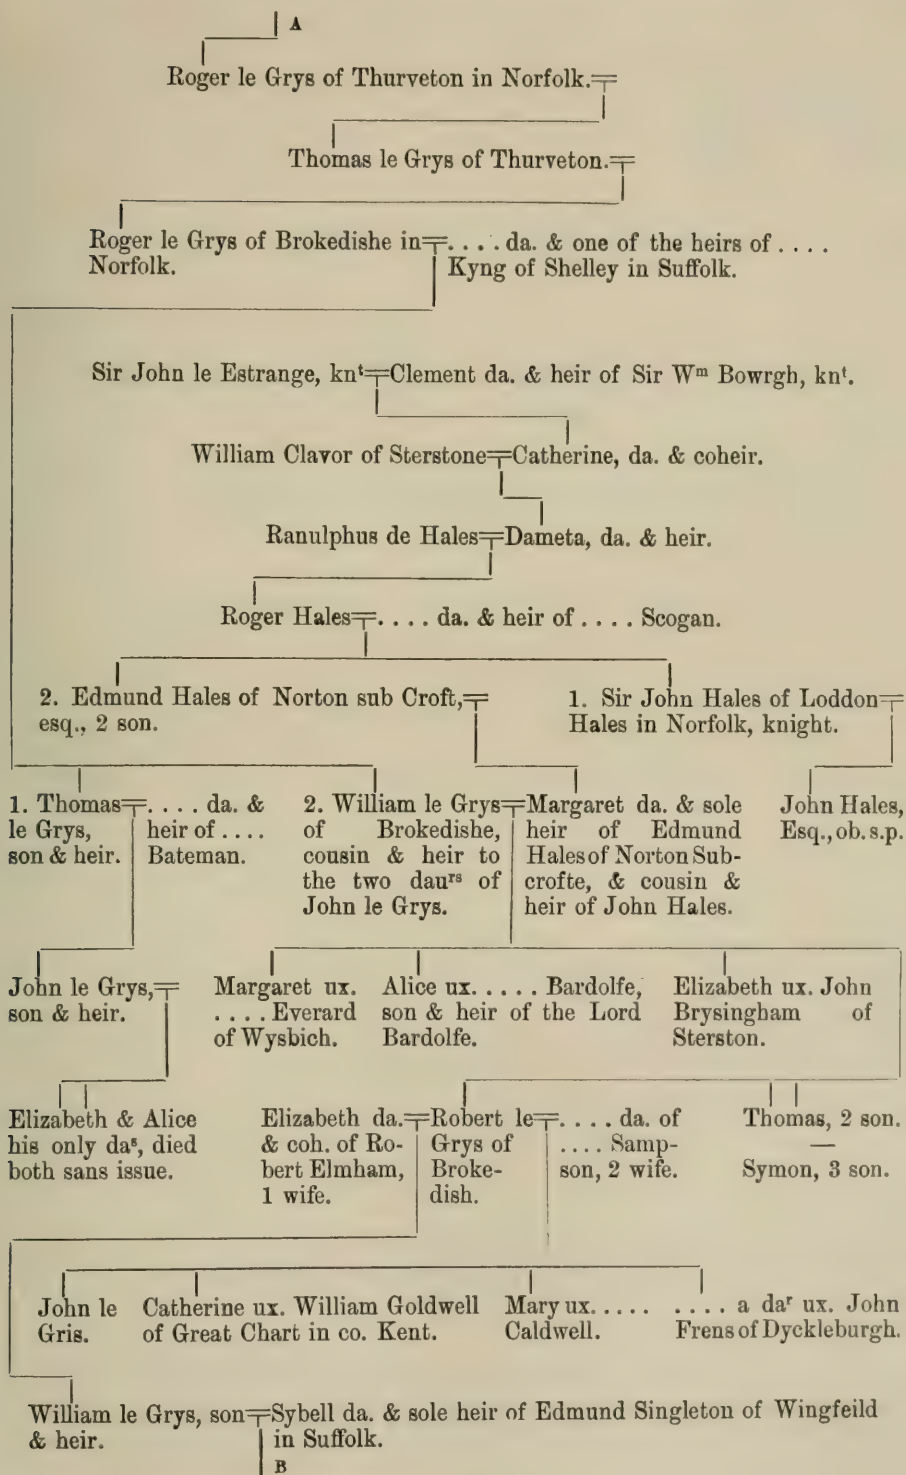 A
Roger le Grys of Thurveton in Norfolk.
Thomas le Grys of Thurveton.
Roger le Grys of Brokedishe in . . . . da. & one of the heirs of . . . .
Norfolk. Kyng of Shelley in Suffolk.
Sir John le Estrange, knᵗ Clement da. & heir of Sir Wᵐ Bowrgh, knᵗ.
William Clavor of Sterstone Catherine, da. & coheir.
Ranulphus de Hales Dameta, da. & heir.
Roger Hales . . . . da. & heir of . . . . Scogan.
2. Edmund Hales of Norton sub Croft,
esq., 2 son.
1. Sir John Hales of Loddon
Hales in Norfolk, knight.
1. Thomas
le Grys,
son & heir.
. . . . da. &
heir of . . . .
Bateman.
2. William le Grys
of Brokedishe,
cousin & heir to
the two dauʳˢ of
John le Grys.
Margaret da. & sole
heir of Edmund
Hales of Norton Sub-
crofte, & cousin &
heir of John Hales.
John Hales,
Esq., ob. s.p.
John le Grys,
son & heir.
Margaret ux.
. . . . Everard
of Wysbich.
Alice ux. . . . . Bardolfe,
son & heir of the Lord
Bardolfe.
Elizabeth ux. John
Brysingham of
Sterston.
Elizabeth & Alice
his only daˢ, died
both sans issue.
Elizabeth da.
& coh. of Ro-
bert Elmham,
1 wife.
Robert le
Grys of
Broke-
dish.
. . . . da. of
. . . . Samp-
son, 2 wife.
Thomas, 2 son.
—
Symon, 3 son.
John le
Gris.
Catherine ux. William Goldwell
of Great Chart in co. Kent.
Mary ux. . . . .
Caldwell.
. . . . a daʳ ux. John
Frens of Dyckleburgh.
William le Grys, son
& heir.
Sybell da. & sole heir of Edmund Singleton of Wingfeild
in Suffolk.
B